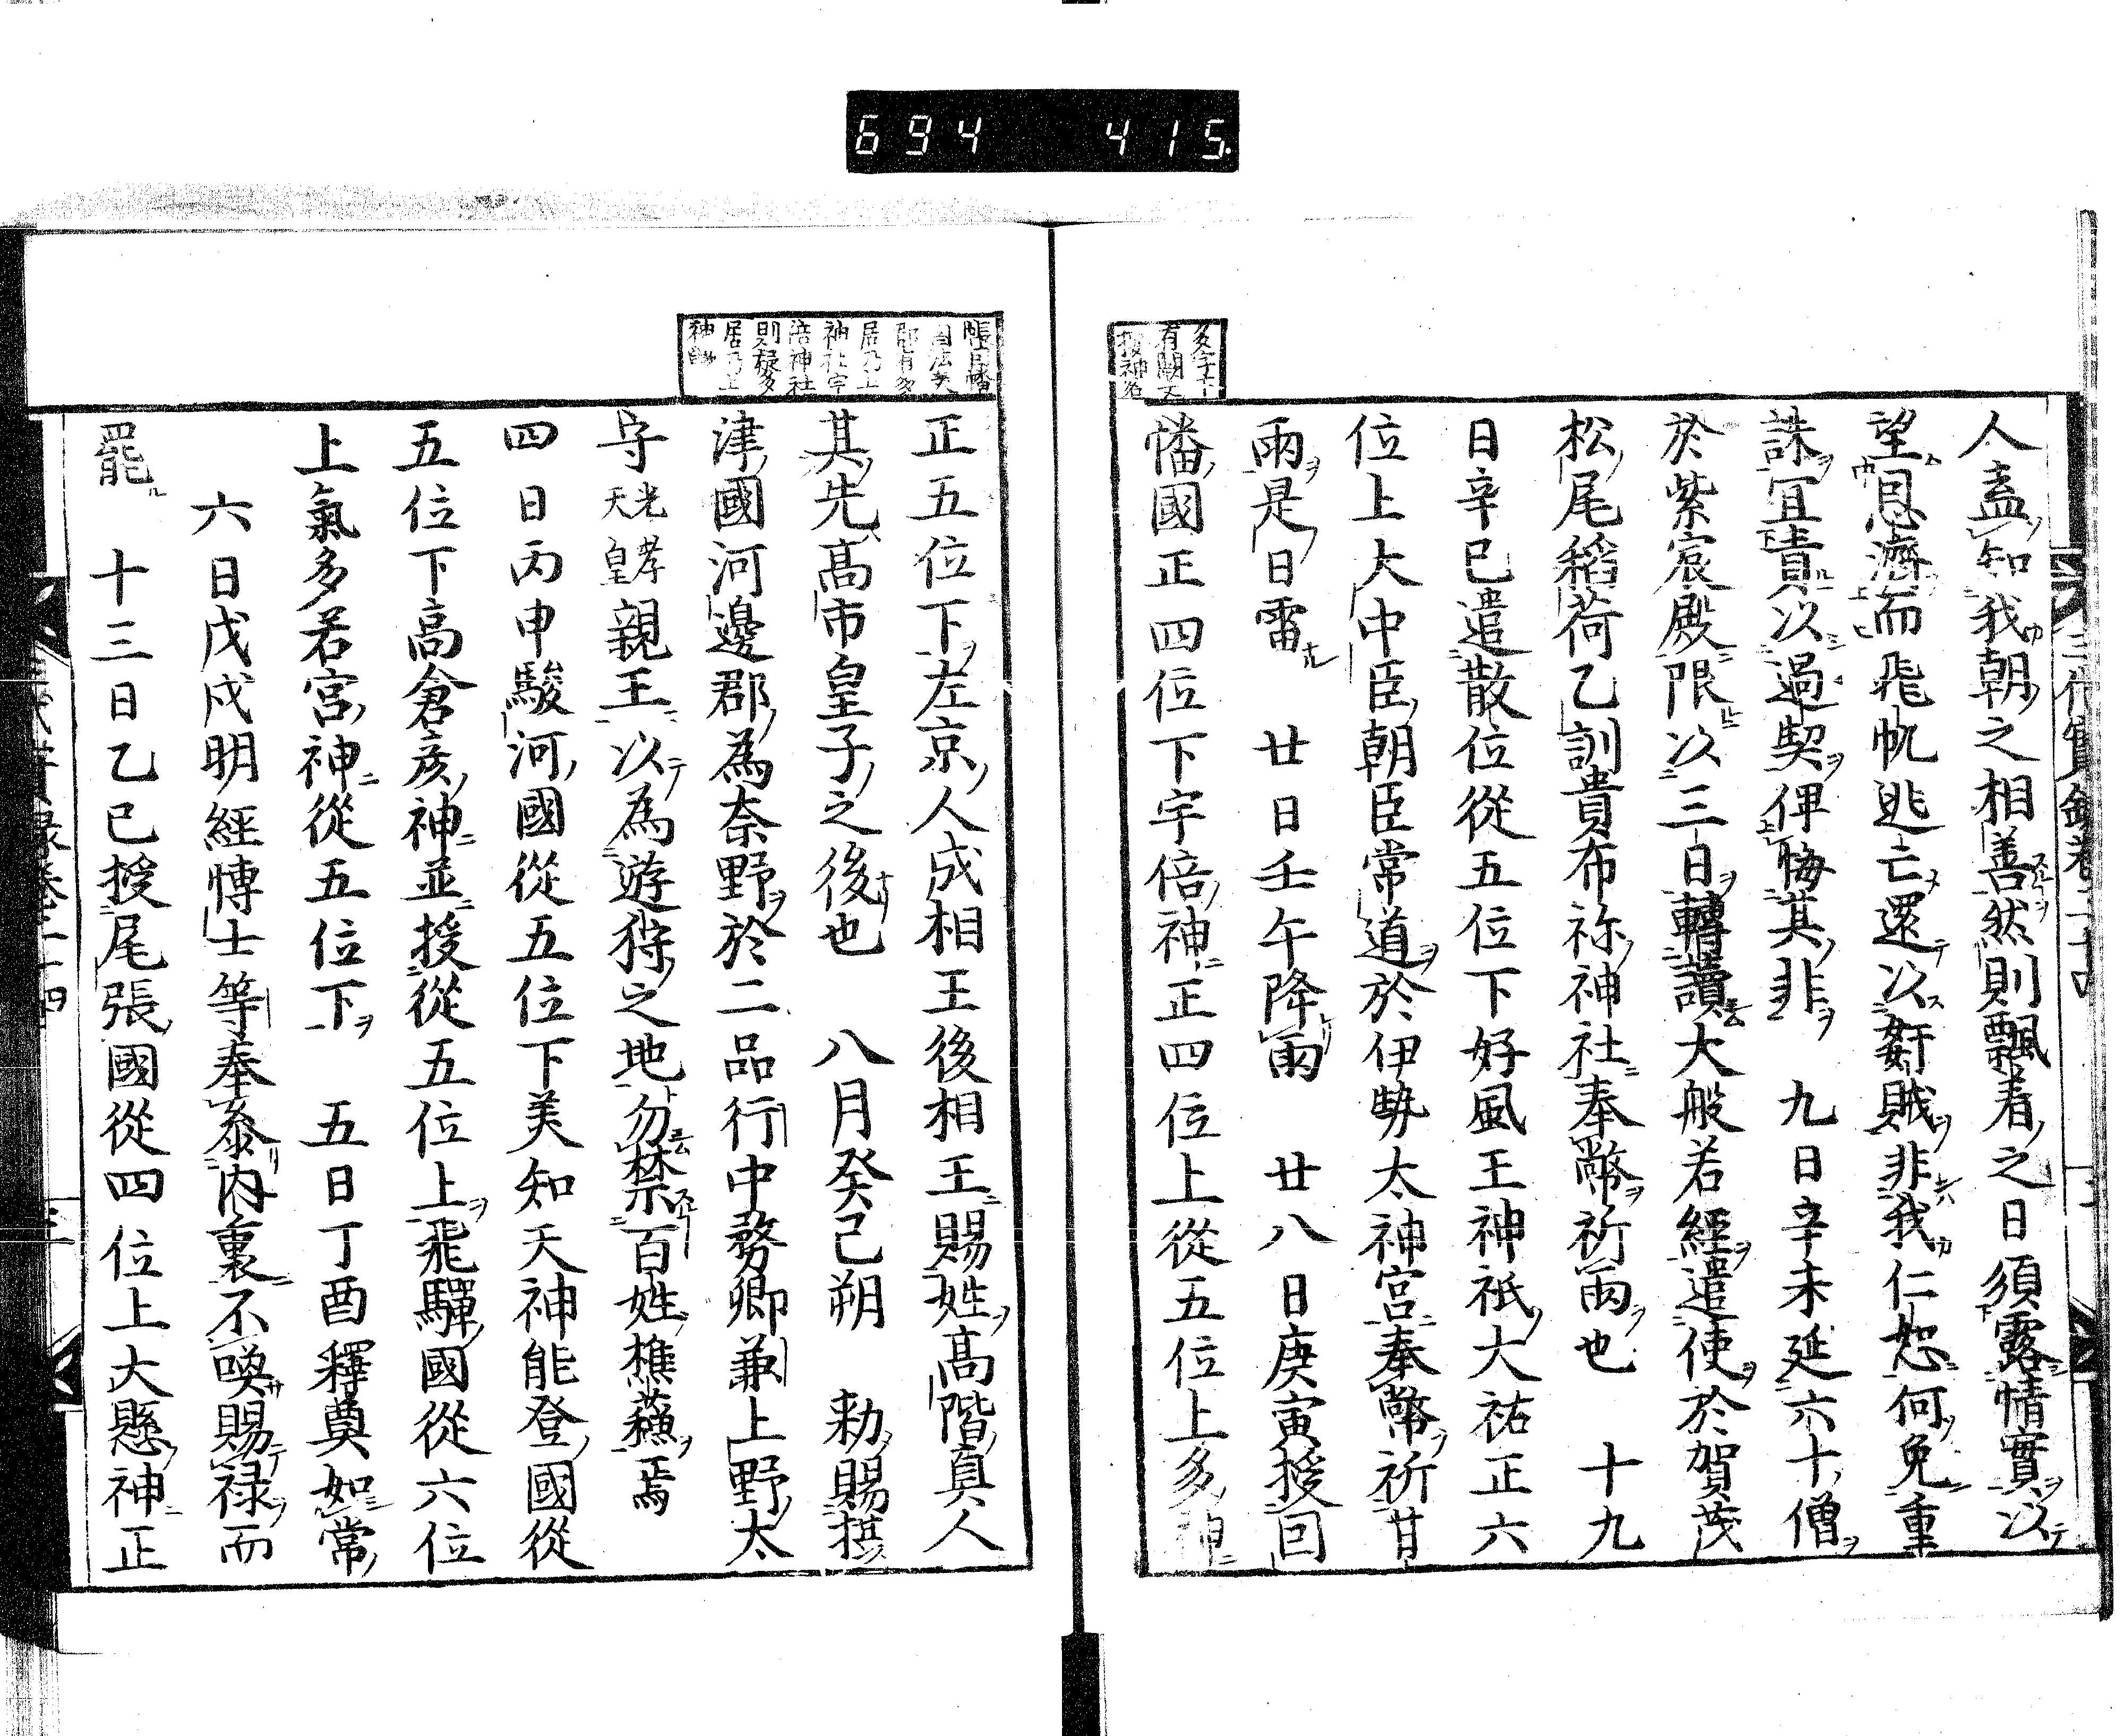 694 415
人盍知我朝之相善然則飄着之日須露情實以
望恩濟而飛帆逃亡還以姧賊非我仁恕何免重
誅宜責以過契俾悔其非 九日辛未延六十僧
於紫宸殿限以三日轉讀大般若經遣使於賀茂
松尾稻荷乙訓貴布祢神社奉幣祈雨也 十九
日辛巳遣散位從五位下好風王神祇大祐正六
位上大中臣朝臣常道於伊勢太神宮奉幣祈甘
雨是日雷 廿日壬午降雨 廿八日庚寅授回
幡國正四位下宇倍神正四位上從五位上多神
多字下
有闕天
授神名
三代實録卷二十四
正五位下左京人成相王後相王賜姓高階真人
其先高市皇子之後也 八月癸己朔 勅賜攝
津國河邊郡為奈野於二品行中務卿兼上野太
守光孝天皇親王以為遊狩之地勿禁百姓樵蘓焉
四日丙申駿河國從五位下美知天神能登國從
五位下高倉彦神並授從五位上飛驒國從六位
上氣多若宮神從五位下 五日丁酉釋奠如常
六日戊戌明經博士等奉參內裏不喚賜禄而
罷 十三日乙巳授尾張國從四位上大懸神正
帳因幡
國法美
郡有多
居乃上
神社宇
倍神社
則疑多
居乃上
神歟